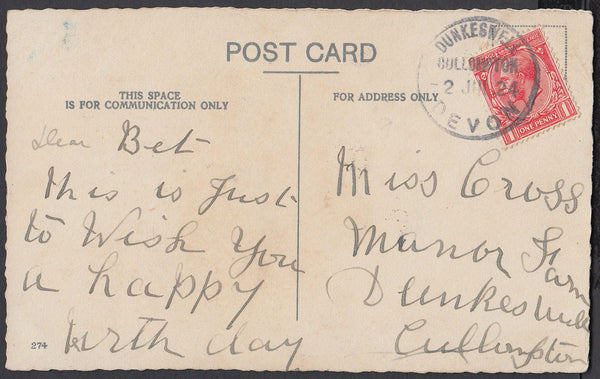 POST CARD
THIS SPACE
IS FOR COMMUNICATION ONLY
FOR ADDRESS ONLY
DUNKESWELL
CULLOMPTON
2 24
DEVON
ONE PENNY
Dear Bet
this is Just
to Wish You
a happy
birth day
274
Miss Cross
Manor Farm
Dunkeswell
Cullompton